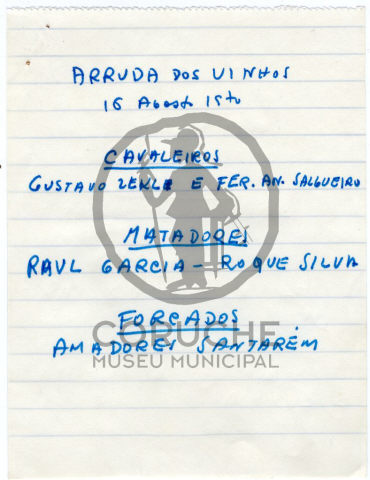 ARRUDA DOS VINHOS
16 Agosto 1970
CAVALEIROS
GUSTAVO ZENKL E FER. AN. SALGUEIRO
MATADORES
RAUL GARCIA - ROQUE SILVA
FORCADOS
CORUCHE
AMADORES SANTARÉM
MUSEU MUNICIPAL